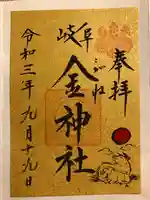 奉拝
岐阜
金神社
こがね
令和三年九月十九日